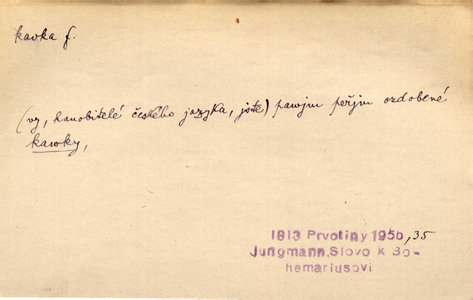 kavka f.
(vy, hanobitelé českého jazyka, jste) pawjm peřjm ozdobené
kawky,
1813 Prvotiny 195b, 35
Jungmann, Slovo k Bo-
hemariusovi